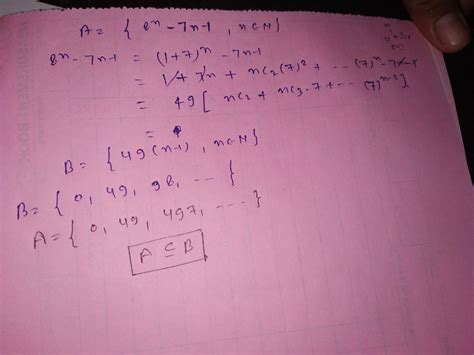 A = { 8ⁿ - 7n-1 , n∈N}
8ⁿ - 7n-1 = (1+7)ⁿ - 7n-1
= 1 + 7n + nc₂(7)² + -- (7)ⁿ - 7n-1
= 49 [ nc₂ + nc₃.7 + -- (7)ⁿ⁻²].
=
B = { 49(n-1) , n∈N}
B = { 0, 49, 98, -- }
A = { 0, 49, 497, ---- }
A ⊆ B